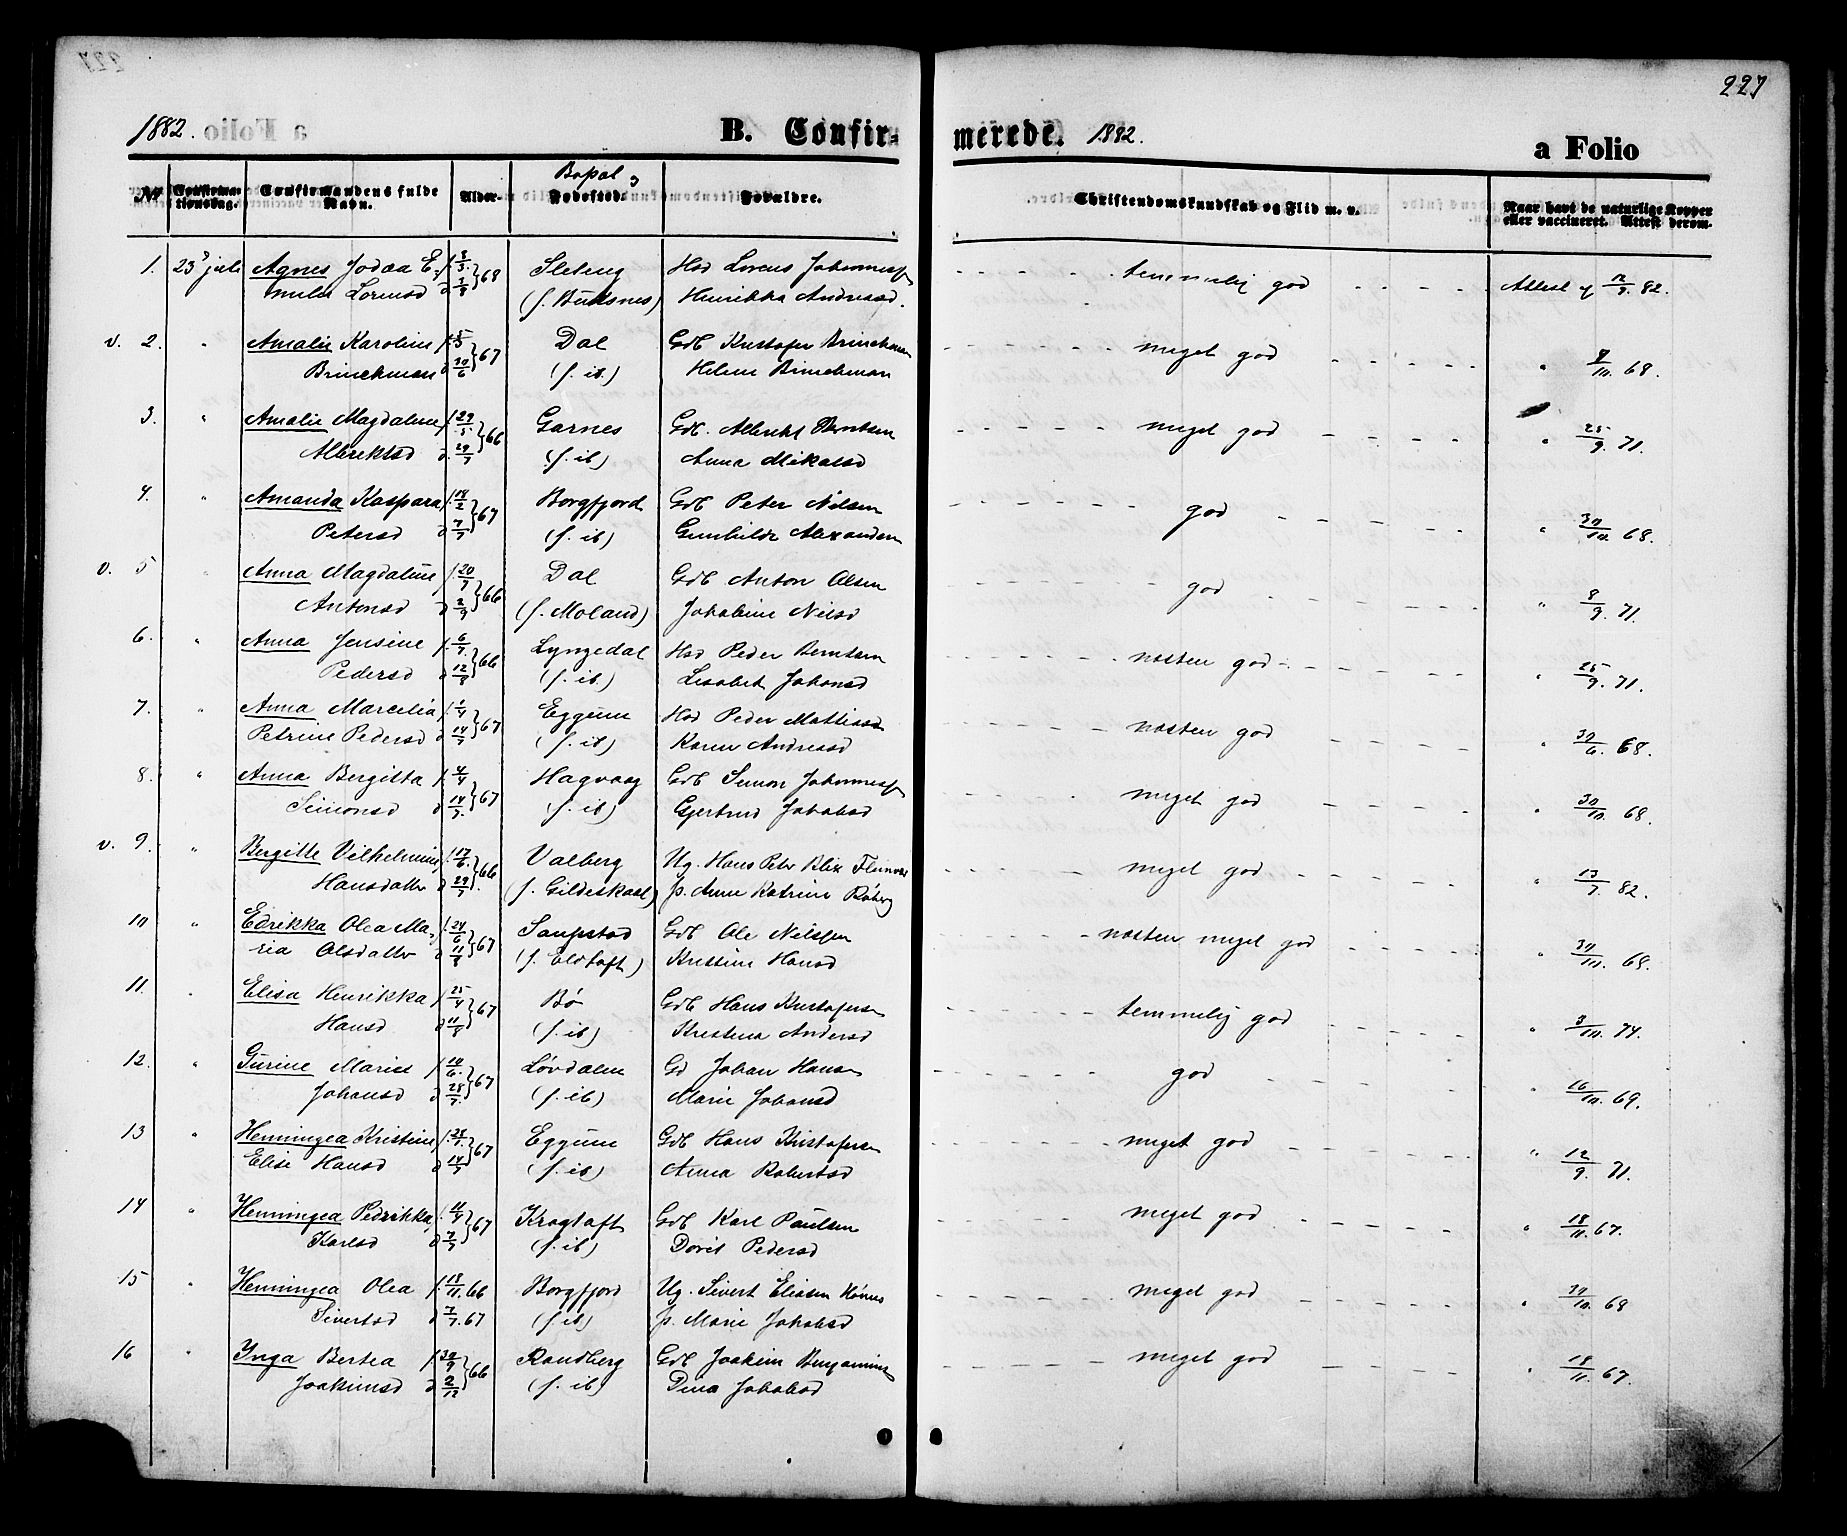 227
1882. B. Confir- merede. 1882. a Folio
No. Confirmationsdag. Confirmandens fulde Navn. Alder. Bopal, Fødested. Forældre. Christendomskundskab og Flid m. v. Naar havt de naturlige Kopper eller vaccineret. Attest derom.
1. 23 juli Agnes Jodæa E- f. 68 Hsd Lorens Johannessen temmelig god Attest af 82.
(f. Buksnes) Henrikka Andreasd.
v. 2. " Amalie Karoline f. 67 Dal Gdb Kristofer Brinchman meget god " 68.
Brinchman d. 30/6 (f. ib.) Helene Brinchman
3. " Amalie Magdalene f. 29/5 66 Garnes Gdb. Albrikt Berntsen meget god " 25/9. 71.
Albriktsd d. 29/7 (f. ib) Anna Mikalsd
4. " Amanda Kaspara f. 18/2 67 Borgfjord Gdb Peter Nilsen god " 30/10. 68.
Petersd d. 7/7 (f. ib) Gunhilde Alexandersen
v. 5 " Anna Magdalene f. 20/7 66 Dal Gdb Anton Olsen god " 8/9. 71.
Antonsd d. 2/9 (f. Moland) Jakobine Nilsd
6. " Anna Jensine f. 6/7. 66 Lyngedal Hsd Peder Berntsen næsten god " 25/9. 71.
Pedersd d. 12/8 (f. ib.) Lisabet Johansd
7. " Anna Marcelia f. 1/4 67 Eggum Hsd Peder Mattiassen næsten god " 30/6. 68.
Petrine Pedersd d. 14/7 (f. ib) Karen Andreasd
8. " Anna Bergitta f. 4/4 67 Hagvaag Gdb Simon Johannessen meget god " 30/10. 68.
Simonsd d. 14/7. (f. ib) Gjertrud Jakobsd
v. 9. " Bergitte Vilhelmine f. 17/6. 66 Valberg Ug. Hans Peter Blix meget god " 13/7 82.
Hansdatter d. 29/7. (f. Gildeskaal) p. Anne Katrine
10 " Edrikka Olea Ma- f. 24/6 67 Saupstad Gdb Ole Nilssen næsten meget god " 30/10. 68.
ria Olsdatter d. 11/8 (f. Eldtoft) Kristine Hansd
11. " Elisa Henrikka f. 25/4 67 Bø Gdb Hans Kristofersen temmelig god " 74.
Hansd d. 11/8 (f. ib) Kristina Andersd
12. " Gurine Marie f. 10/6. 67 Løvdalen Gd Johan Hansen god " 16/10. 69.
Johansd d. 28/7. (f. ib) Marie Johansd
13 " Henningea Kristine f. 67 Eggum Gdb Hans Kristofersen meget god " 12/9. 71.
Elise Hansd d. 14/7 (f. ib) Anna Robertsd
14 " Henningea Pedrikka f. 11/4 67 Kragtoft Gdb Karl Paulsen meget god " 18/11. 67.
Karlsd d. 7/7 (f. ib) Dorit Pedersd
15 " Henningea Olea f. 18/11. 66 Borgfjord Ug. Sivert Eliasen meget god " 30/10. 68
Sivertsd d. 7/7. 67 (f. ib) p. Marie Jakobsd
16 " Inga Bertea f. 30/9 66 Randberg Gdb Joakim Benjaminsen meget god " 18/11. 67.
Joakimsd d. 2/12 (f. ib) Dina Jakobsd